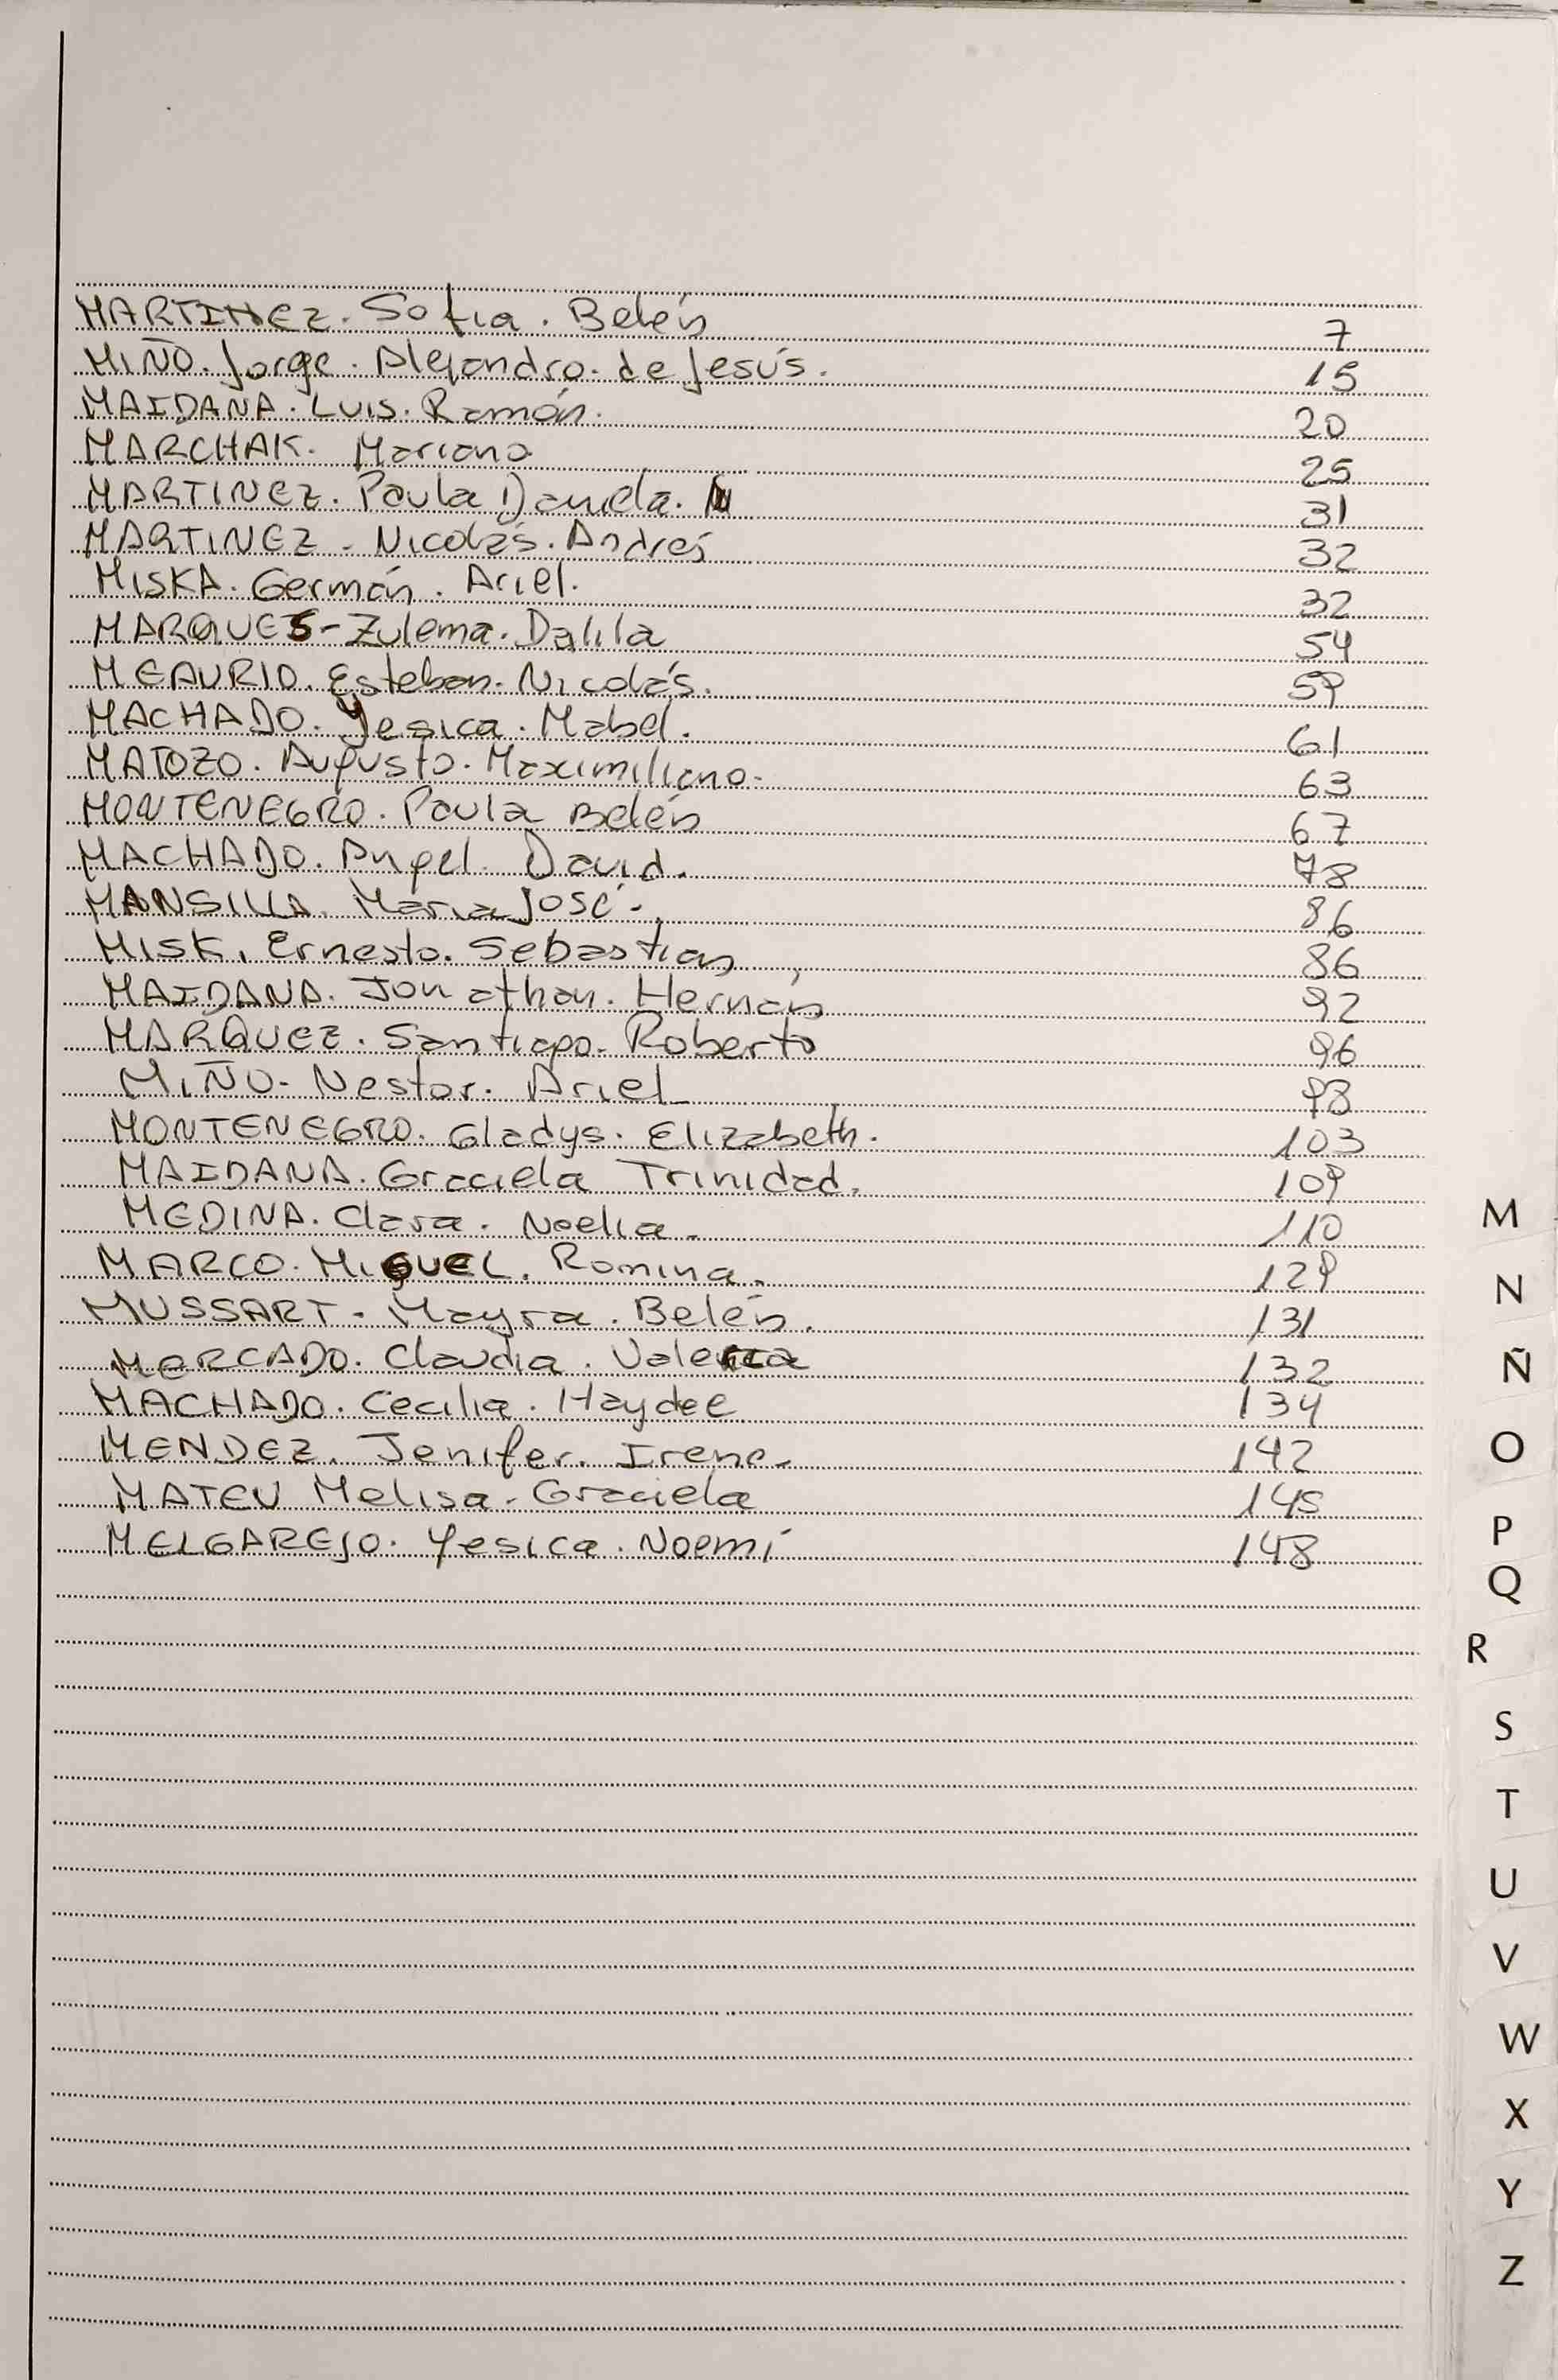 MARTINEZ. Sofia. Belén 7
MIÑO. Jorge. Alejandro. de Jesús. 15
MAIDANA. LUIS. Ramón. 20
MARCHAK. Mariano 25
MARTINEZ. Paula Daniela. 31
MARTINEZ - Nicolás. Andrés 32
MISKA. Germán. Ariel. 32
MARQUES - Zulema. Dalila 54
MEAURIO. Esteban. Nicolás. 59
MACHADO. Yesica. Mabel. 61
MATOZO. Augusto. Maximiliano. 63
MONTENEGRO. Paula Belén 67
MACHADO. Angel. David. 78
MANSILLA. María José. 86
MISK. Ernesto. Sebastian 86
MAIDANA. Jonathan. Hernán 92
MARQUEZ. Santiago. Roberto 96
MIÑO. Nestor. Ariel 98
MONTENEGRO. Gladys. Elizabeth. 103
MAIDANA. Graciela Trinidad. 109
MEDINA. Clara. Noelia. 110
MARCO. MIGUEL. Romina. 129
MUSSART. Mayra. Belén. 131
MERCADO. Claudia. Valeria 132
MACHADO. Cecilia. Haydee 134
MENDEZ. Jenifer. Irene. 142
MATEU Melisa. Graciela 145
MELGAREJO. Yesica. Noemí 148
M
N
Ñ
O
P
Q
R
S
T
U
V
W
X
Y
Z